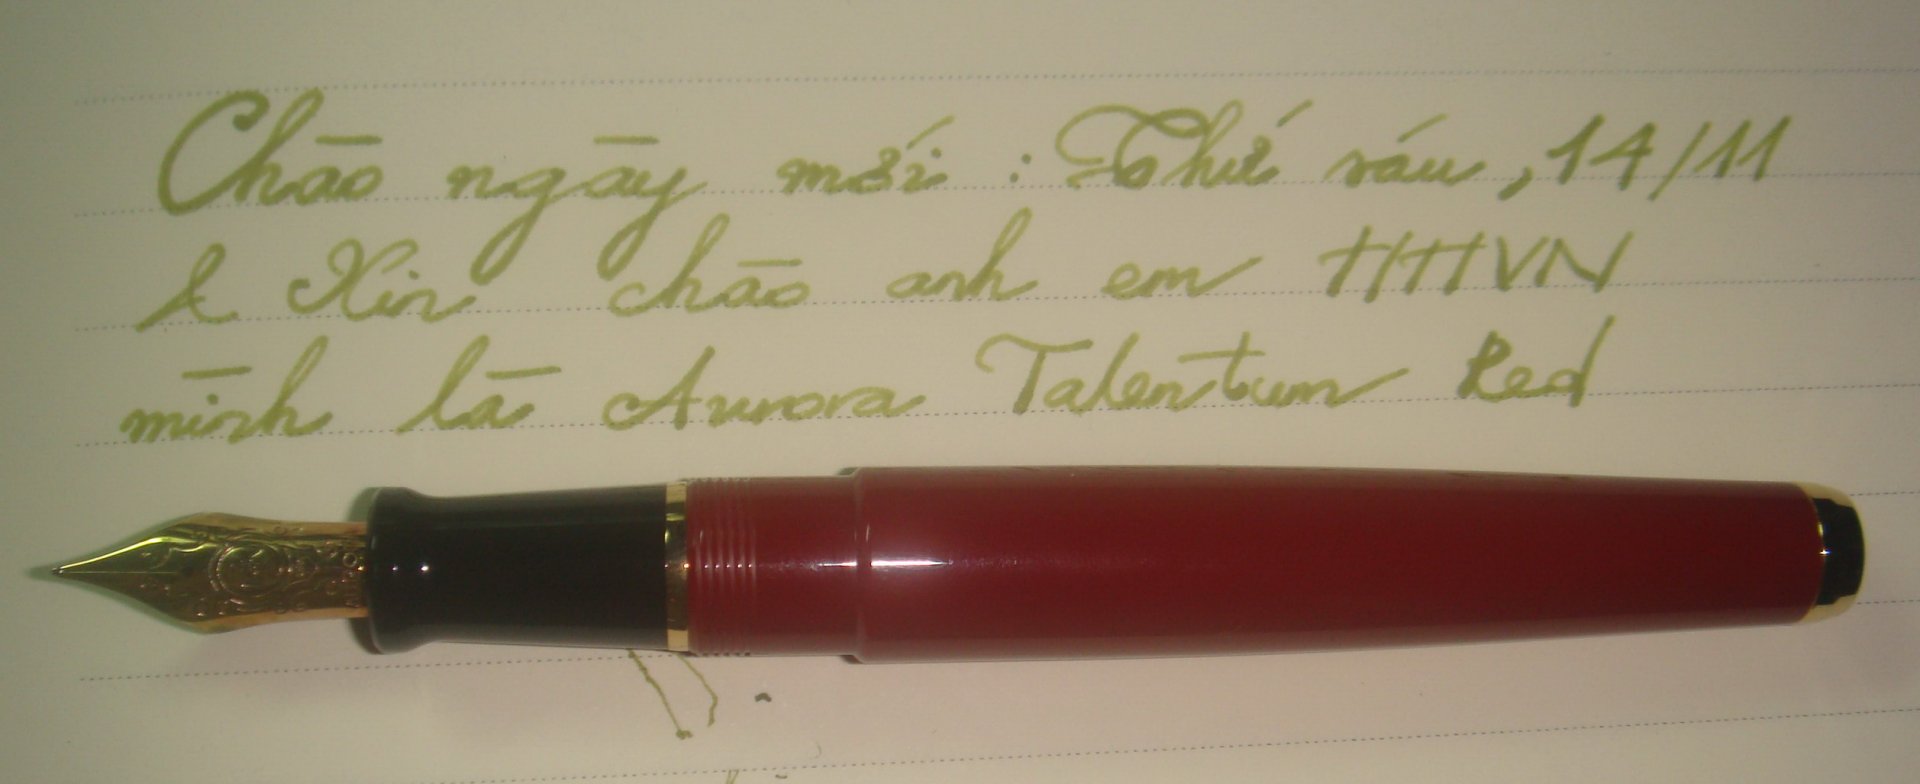 Chào ngày mới : Thứ sáu, 14/11
& Xin chào anh em HHVN
mình là Aurora Talentum Red